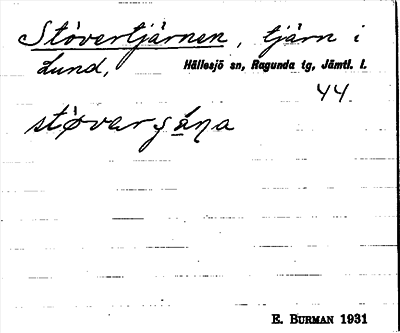 Stövertjärnen, tjärn i
Lund, Hällesjö sn, Ragunda tg, Jämtl. l.
44.
E. BURMAN 1931